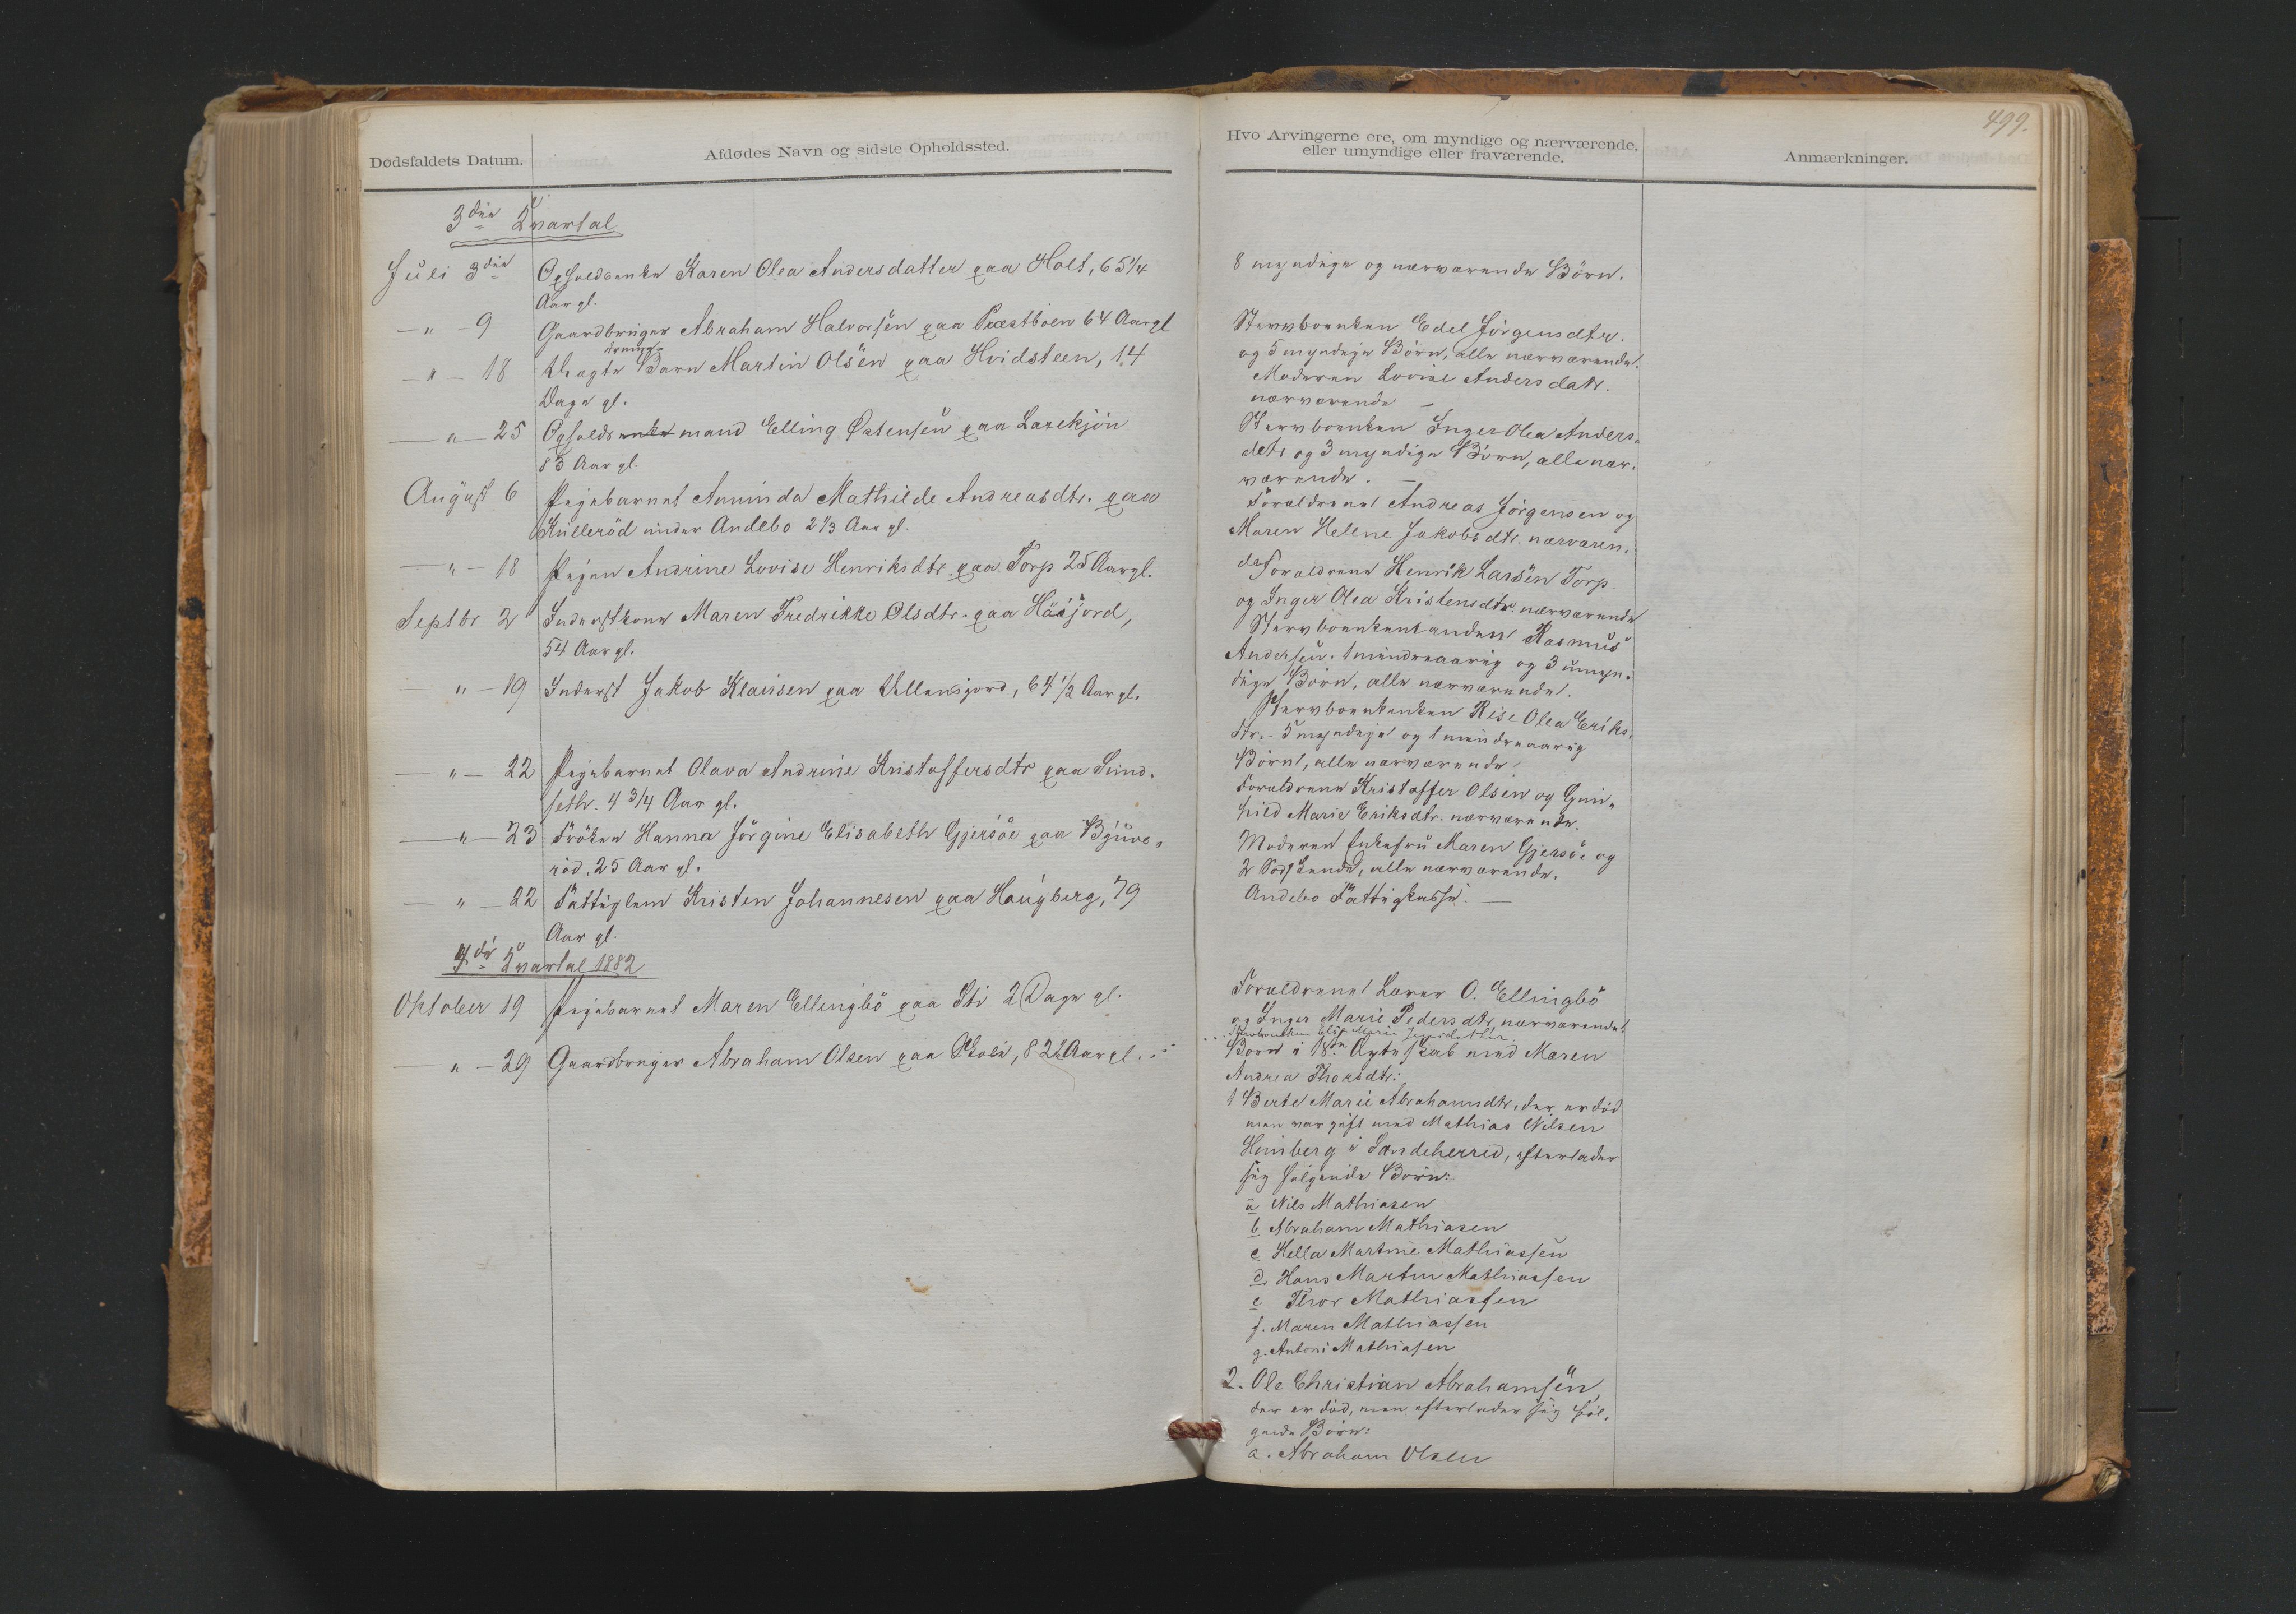 Dødsfaldets Datum.
Afdødes Navn og sidste Opholdssted.
3die Qvartal
Juli 3die Opholdsenke Karen Olea Andersdatter paa Holt, 65 1/4
Aar gl.
— " — 9 Gaardbruger Abraham Halvorsen paa Præstboen 64 Aar gl
— " — 18 Uægte drenge Barn Martin Olsen paa Hvidsteen, 14
Dage gl.
— " — 25 Opholdsenke mand Elling Østensen paa
83 Aar gl.
August 6 Pigebarnet Aminda Mathilde Andreasdtr. paa
Kullerød under Andebo 2 1/3 Aar gl.
— " — 18 Pigen Andrine Lovise Henriksdtr. paa Torp 25 Aar gl.
Septbr 2 Inderstkone Maren Fredrikke Olsdtr. paa Håsjord,
54 Aar gl.
— " — 19 Inderst Jakob Klausen paa 64 1/2 Aar gl.
— " — 22 Pigebarnet Olava Andrine Kristoffersdtr paa Sund-
seth. 4 3/4 Aar gl.
— " — 23 Frøken Hanna Jørgine Elisabeth Gjersøe paa Bjuve-
rød, 25 Aar gl.
— " — 22 Fattiglem Kristen Johannesen paa Haugberg, 79
Aar gl.
4de Qvartal 1882
Oktober 19 Pigebarnet Maren Ellingbø paa Sti 2 Dage gl.
— " — 29 Gaardbruger Abraham Olsen paa 82 Aar gl.
499.
Hvo Arvingerne ere, om myndige og nærværende,
eller umyndige eller fraværende.
Anmærkninger.
8 myndige og nærværende Børn.
Stervboenken Edel Jørgensdtr.
og 5 myndige Børn, alle nærværende.
Moderen Lovise Andersdatr.
nærværende —
Stervboenken Inger Olea Anders-
dtr og 3 myndige Børn, alle nær-
værende. —
Forældrene Andreas Jørgensen og
Maren Helene Jakobsdtr. nærværen-
de
Forældrene Henrik Larsen Torp
og Inger Olea Kristensdtr. nærværende
Stervboenkemanden Rasmus
Andersen. 1 mindreaarig og 3 umyn-
dige Børn, alle nærværende.
Stervboenken Rise Olea Eriks-
dtr. 5 myndige og 1 mindreaarig
Børn, alle nærværende.
Forældrene Kristoffer Olsen og Gun-
hild Marie Eriksdtr. nærværende.
Moderen Enkefru Maren Gjersøe og
2 Sødskende, alle nærværende.
Andebo Fattigkasse. —
Forældrene Lærer O. Ellingbø
og Inger Marie Pedersdtr, nærværende.
Stervboenken Marie
Børn i 18de Ægteskab med Maren
Andrea Thorsdtr:
1 Berte Marie Abrahamsdtr, der er død
men var gift med Mathias Nilsen
Himberg i Sandeherred, efterlader
sig følgende Børn:
a Nils Mathiasen
b Abraham Mathiasen
c Hella Martine Mathiassen
d. Hans Martin Mathiassen
e Thor Mathiassen
f. Maren Mathiassen
g. Antoni Mathiasen
2. Ole Christian Abrahamsen,
der er død, men efterlader sig føl-
gende Børn:
a. Abraham Olsen